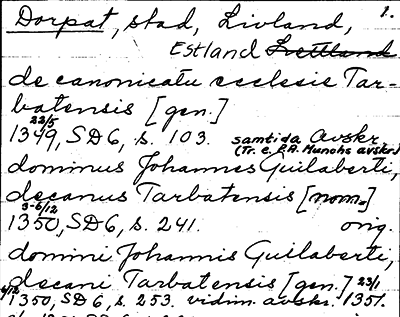 Dorpat, stad, Livland, 1.
Estland Lettland
de canonicatu ecclesie Tar-
batensis [gen.]
22/5
1349, SD6, s. 103. samtida avskr.
(Tr. e. P.A. Munchs avskr.)
dominus Johannes Guilaberti,
decanus Tarbatensis [nom.]
3-6/12
1350, SD6, s. 241. orig.
domini Johannis Guilaberti,
decani Tarbatensis [gen.] 23/1
6/12 1350, SD6, s. 253. vidim. avskr. 1351.